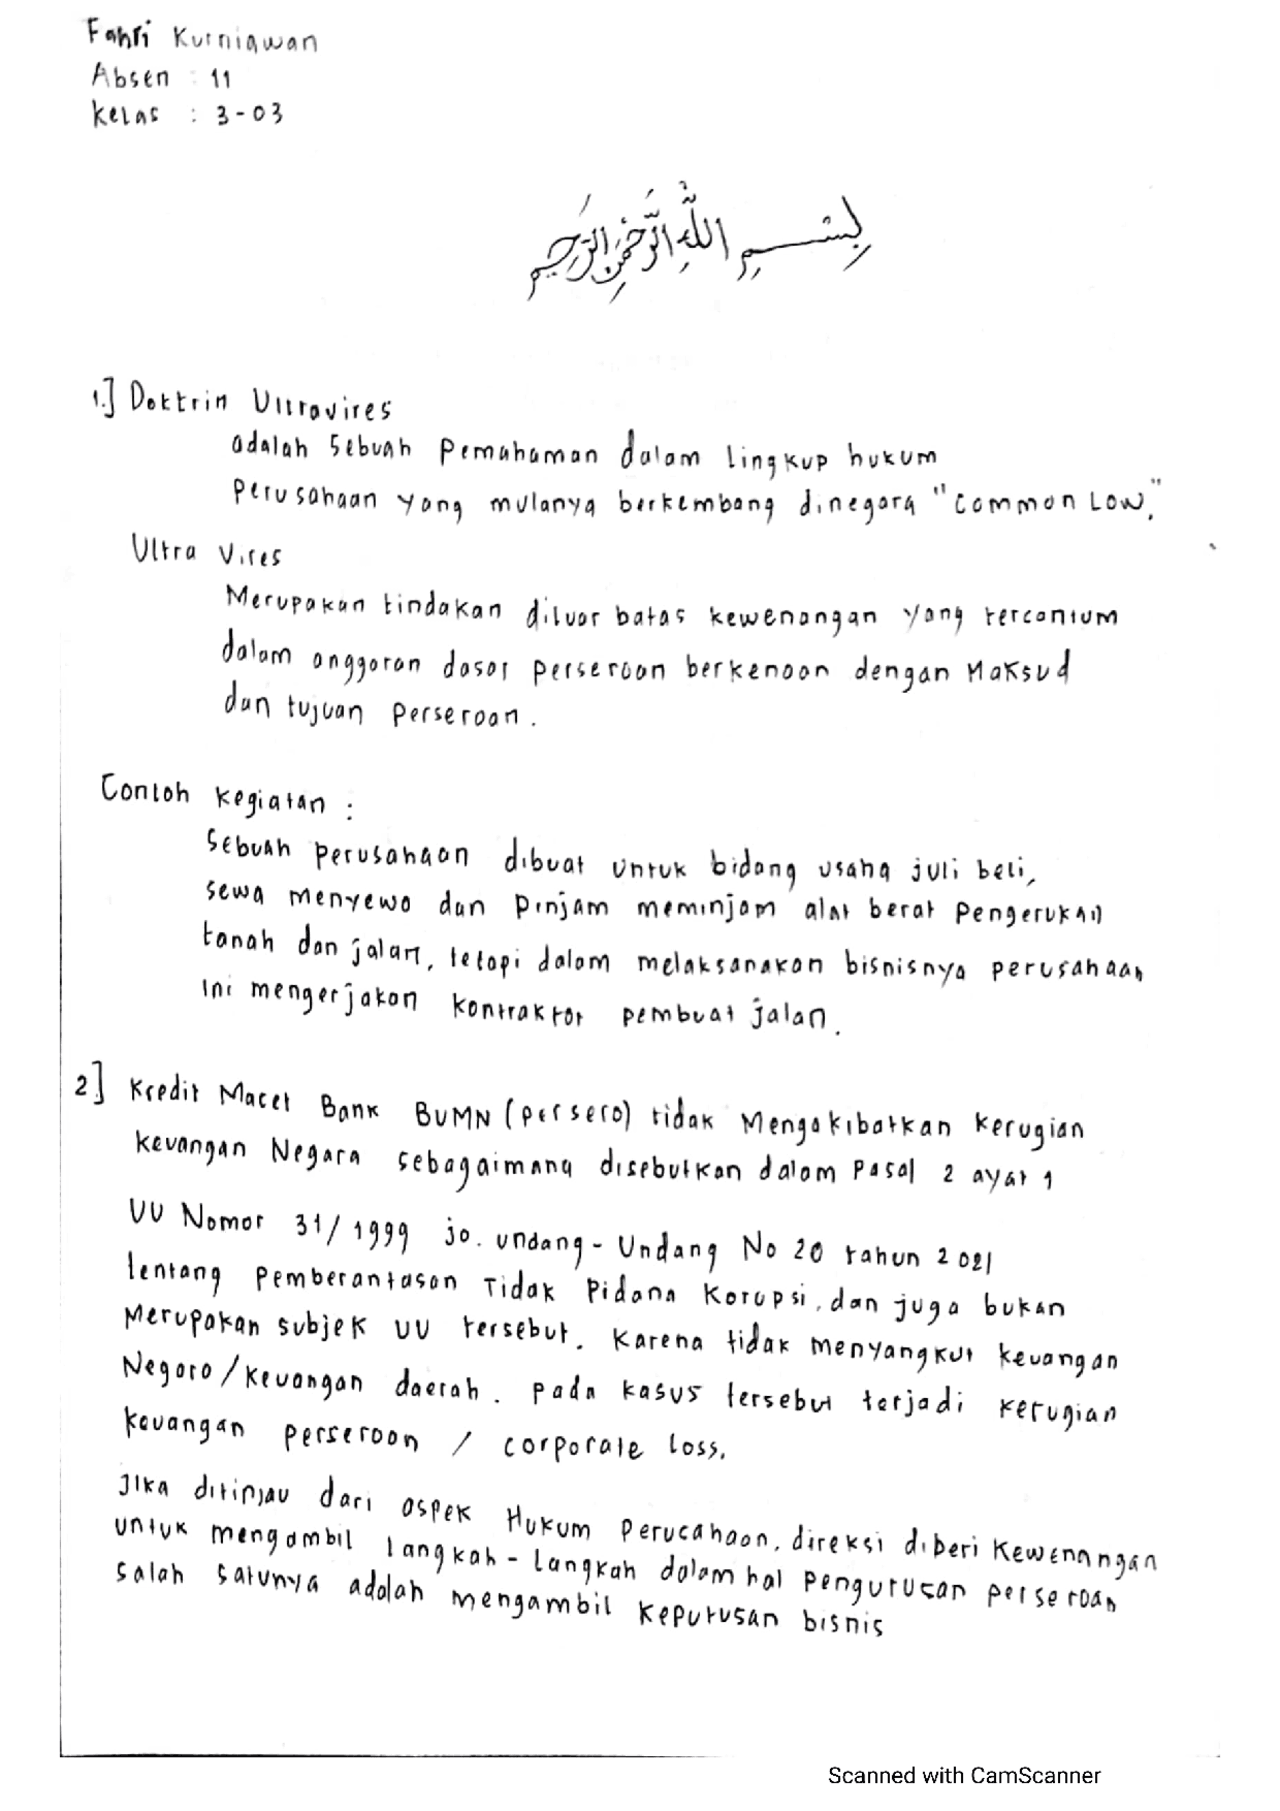 Fahri Kurniawan
Absen : 11
Kelas : 3-03
بِسْـــمِ اللّٰهِ الرَّحْمٰنِ الرَّحِيْمِ
1.] Doktrin Ultravires
adalah sebuah Pemahaman dalam Lingkup hukum
Perusahaan yang mulanya berkembang dinegara "Common Low."
Ultra Vires
Merupakan tindakan diluar batas kewenangan yang tercantum
dalam anggaran dasar Perseroan berkenaan dengan Maksud
dan tujuan Perseroan.
Contoh kegiatan :
Sebuah perusahaan dibuat untuk bidang usaha juli beli,
sewa menyewa dan Pinjam meminjam alat berat Pengerukan
tanah dan jalan, tetapi dalam melaksanakan bisnisnya perusahaan
ini mengerjakan kontraktor pembuat jalan.
2] Kredit Macet Bank BUMN (persero) tidak Mengakibatkan kerugian
keuangan Negara sebagaimana disebutkan dalam Pasal 2 ayat 1
UU Nomor 31/1999 jo. undang-Undang No 20 tahun 2021
tentang Pemberantasan Tidak Pidana Korupsi, dan juga bukan
Merupakan subjek UU tersebut. Karena tidak menyangkut keuangan
Negara/keuangan daerah. Pada kasus tersebut terjadi kerugian
keuangan perseroan / corporate loss.
Jika ditinjau dari aspek Hukum Perusahaan, direksi diberi Kewenangan
untuk mengambil langkah-langkah dalam hal pengurusan perseroan
salah satunya adalah mengambil keputusan bisnis
Scanned with CamScanner